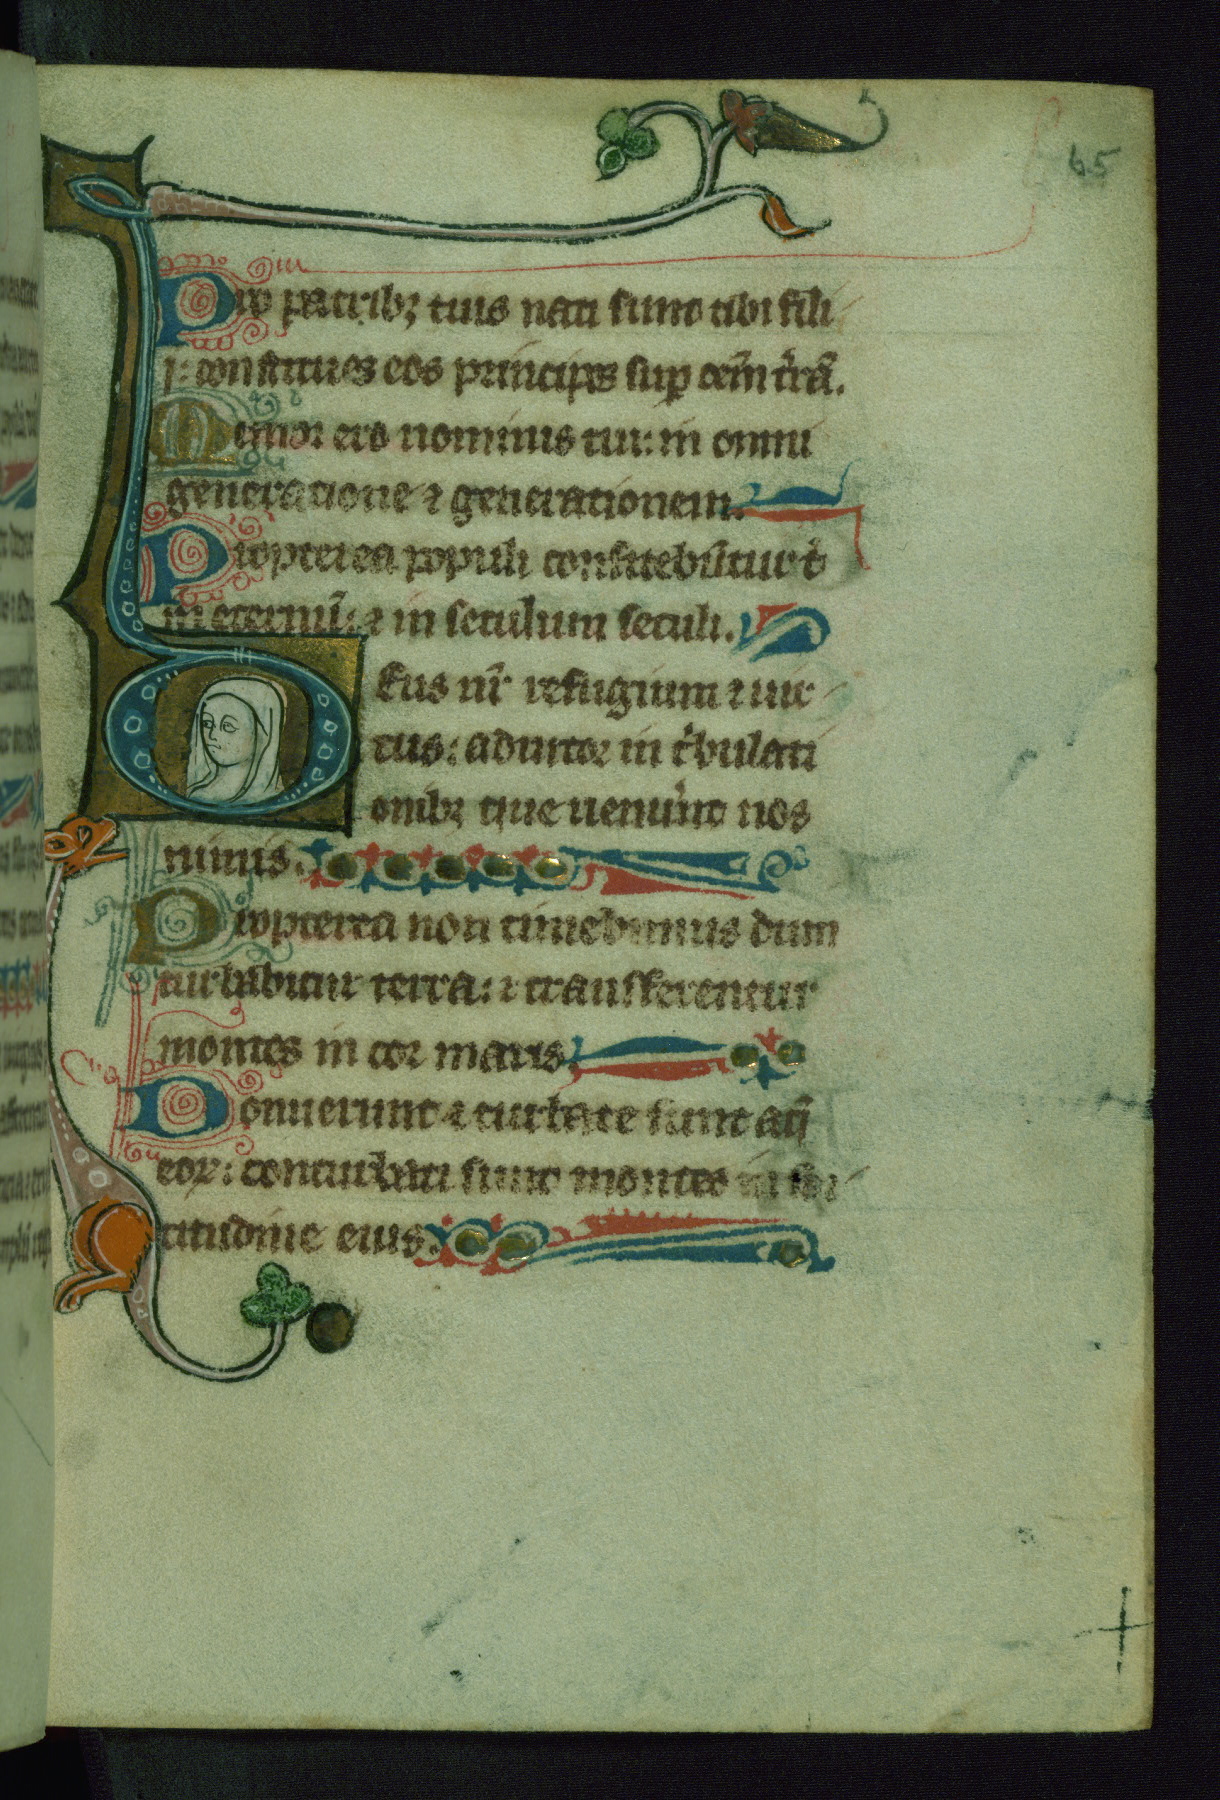 65
Pro patribꝫ tuis nati sunt tibi fili
i: constitues eos principes suꝑ oẽm t̾rã.
Memor ero nominis tui: in omni
generatione ⁊ generationem.
Propterea populi confitebũtur t̾
in eternũ: ⁊ in seculum seculi.
Deus nr̃ refugium ⁊ uir
tus: adiutor in t̾bulati
onibꝫ que uener̃nt nos
nimis.
Propterea non timebimus dum
turbabitur terra: ⁊ transferentur
montes in cor maris.
Sonuerunt ⁊ turbate sunt aq̃
eoꝝ: conturbati sunt montes in for
titudine eius.